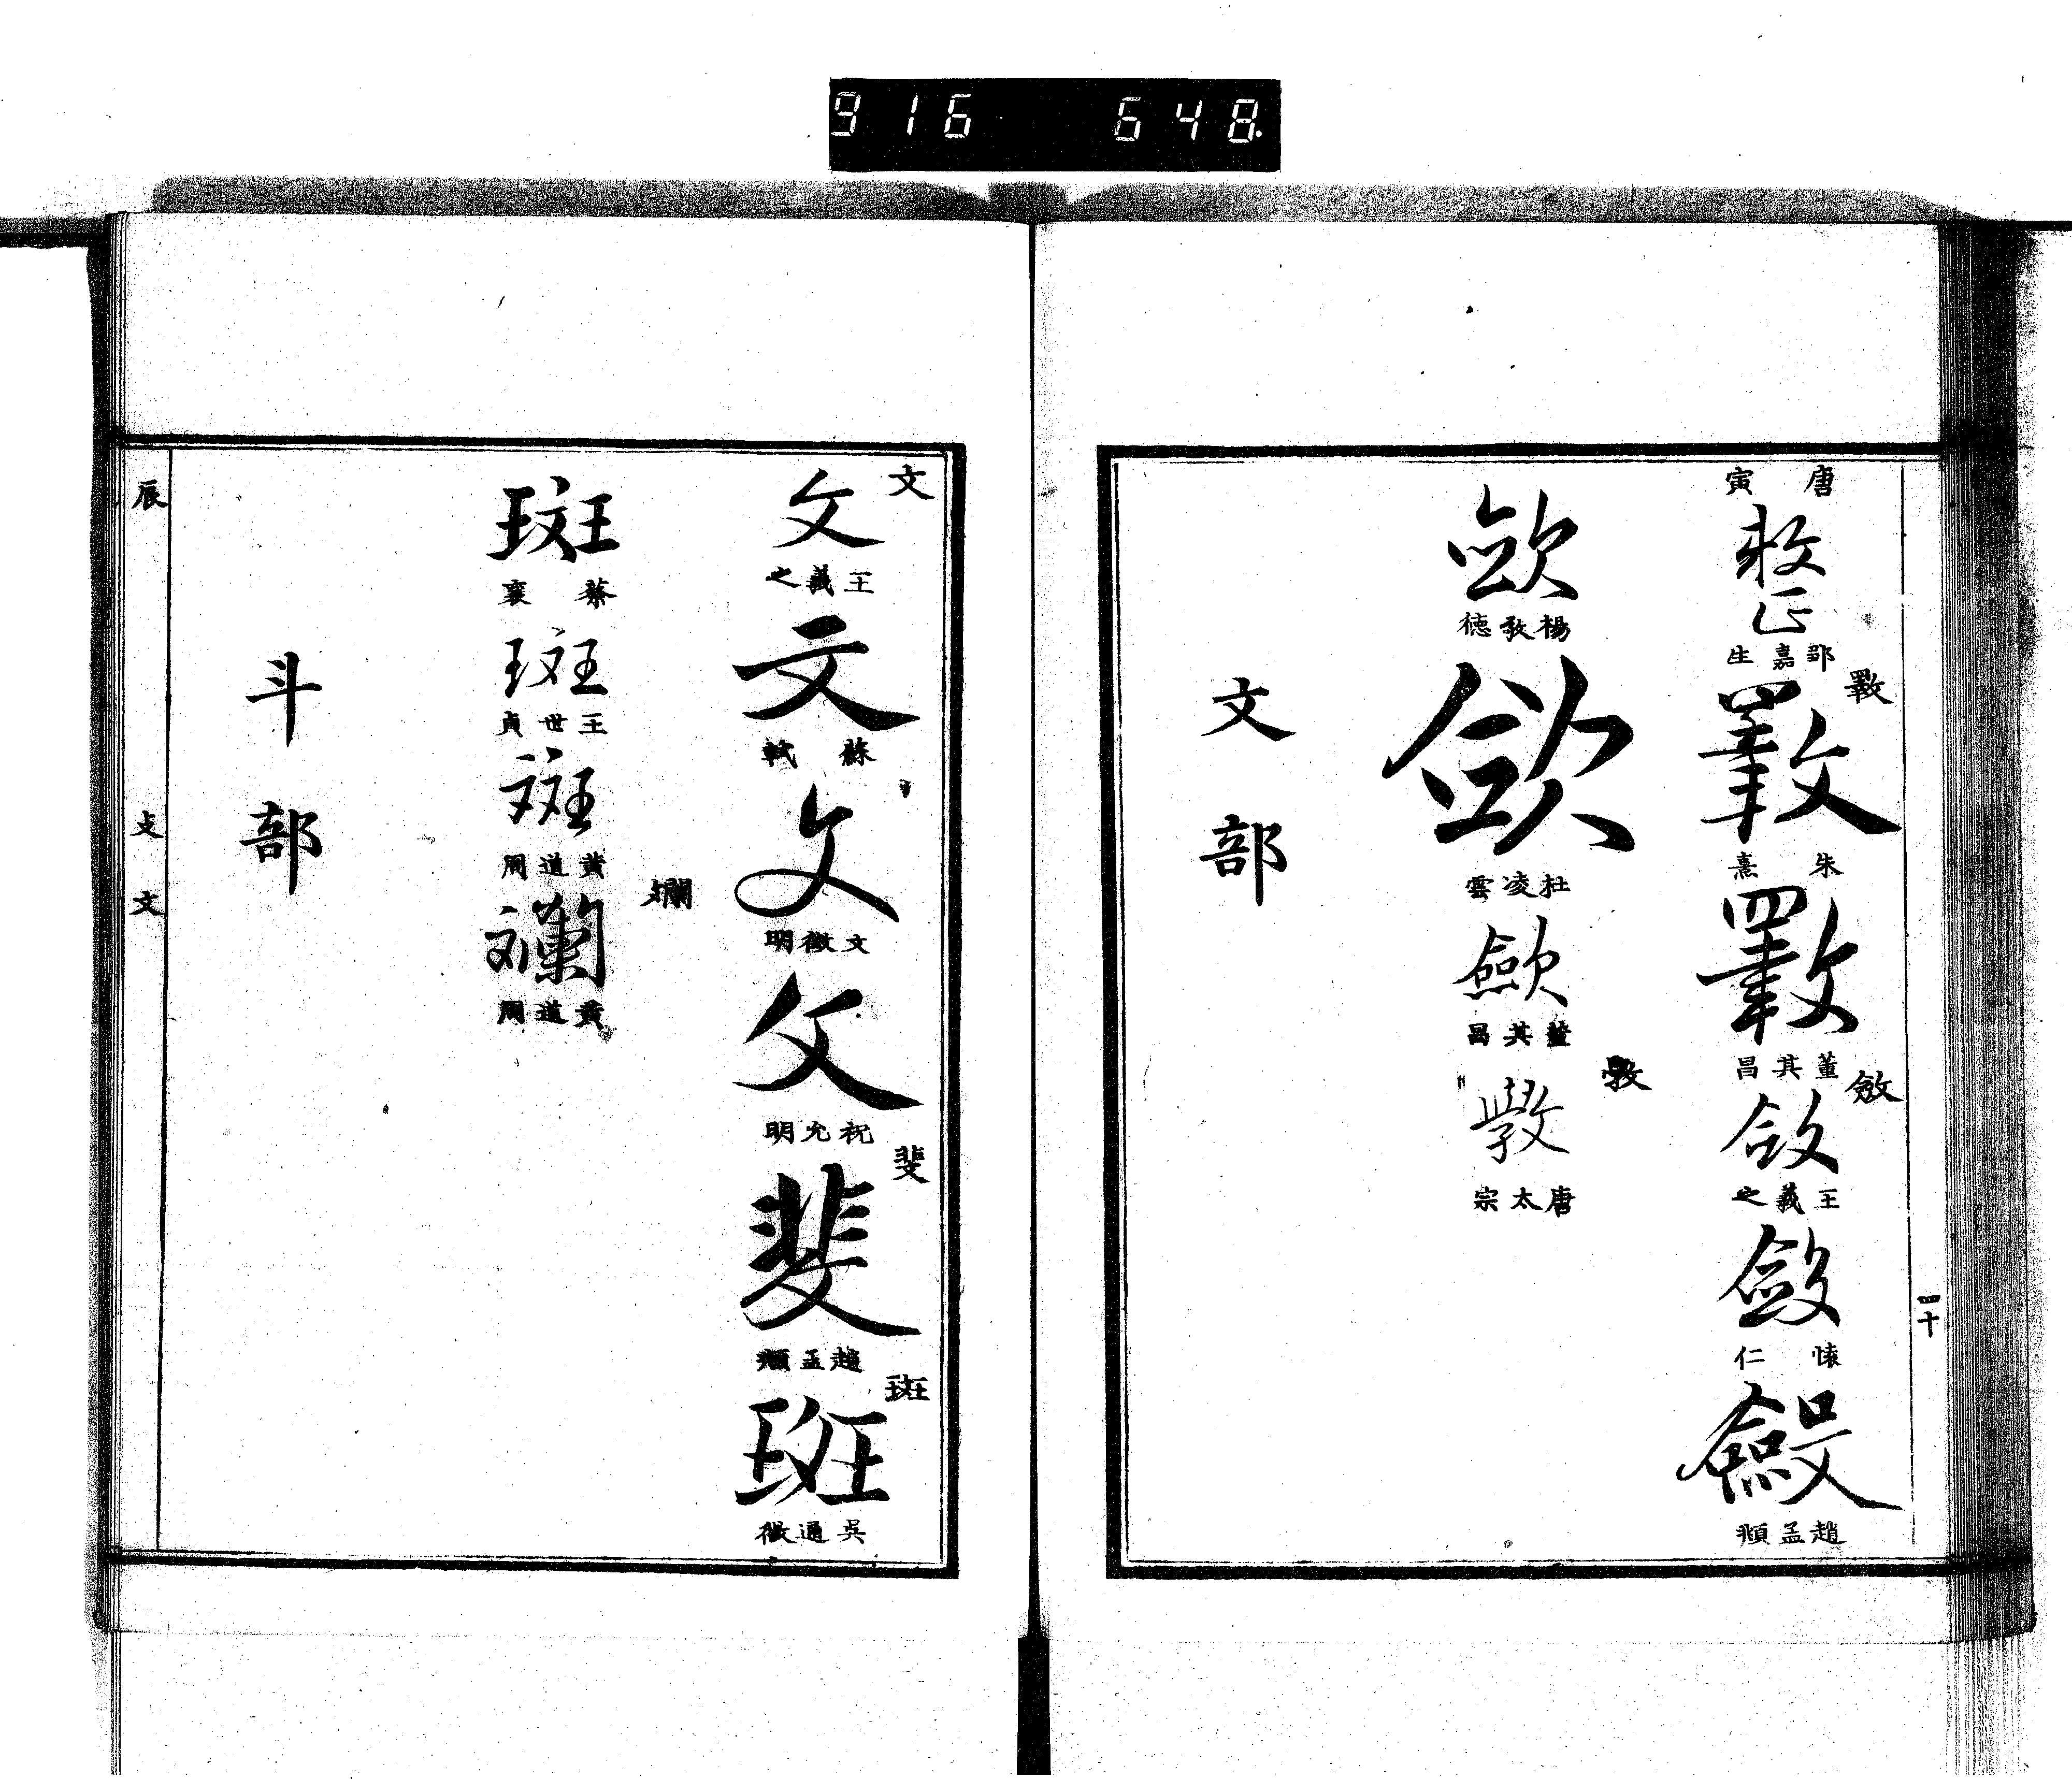 916 648.
四十
唐寅
整
部嘉生
斁
斁
朱熹
斁
董其昌
斂
斂
王羲之
斂
懷仁
斂
趙孟頫
斂
楊敬德
斂
杜凌雲
斂
董其昌
斆
斆
唐太宗
文部
文
文
王羲之
文
蘇軾
文
文徵明
文
祝允明
斐
斐
趙孟頫
斑
斑
吳通微
斑
蔡襄
斑
王世貞
斑
黃道周
斕
斕
黃道周
斗部
辰 攴 文